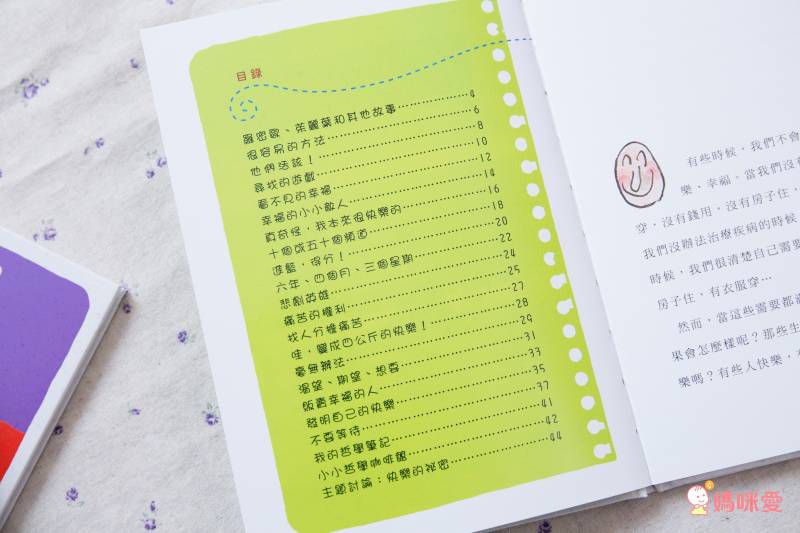 目錄
羅密歐、茱麗葉和其他故事………………4
很容易的方法………………6
他們活該！………………8
尋找的遊戲………………10
看不見的幸福………………12
幸福的小小敵人………………14
真奇怪，我本來很快樂的………………16
十個或五十個頻道………………18
進籃，得分！………………20
六年、四個月、三個星期………………22
悲劇英雄………………24
痛苦的權利………………25
找人分擔痛苦………………27
哇，變成四公斤的快樂！………………28
毫無辦法………………29
渴望、期望、想要………………31
販賣幸福的人………………33
發明自己的快樂………………35
不要等待………………37
我的哲學筆記………………41
小小哲學咖啡館………………42
主題討論：快樂的祕密………………44
有些時候，我們不會
樂、幸福。當我們沒有
穿，沒有錢用，沒有房子住，
我們沒辦法治療疾病的時候
時候，我們很清楚自己需要
房子住，有衣服穿…
然而，當這些需要都
果會怎麼樣呢？那些生
樂嗎？有些人快樂，
媽咪愛